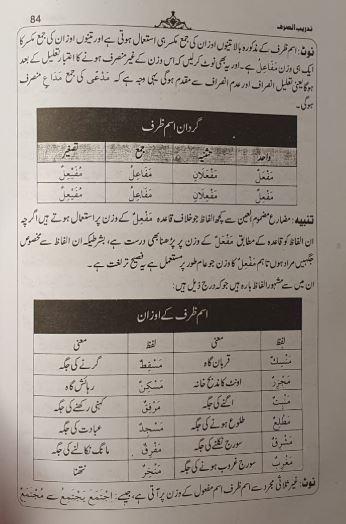 84
تدریب الصرف
نوٹ: اسم ظرف کے مذکورہ بالا تینوں اوزان کی جمع مکسر ہی استعمال ہوتی ہے اور تینوں اوزان کی جمع مکسر کا
ایک ہی وزن مَفَاعِلُ ہے۔ اور یہ بھی نوٹ کر لیں کہ اس وزن کے غیر منصرف ہونے کا اعتبار تعلیل کے بعد
ہوگا یعنی تعلیل انصراف اور عدم انصراف سے مقدم ہوگی یہی وجہ ہے کہ مَدْعًى کی جمع مَدَاعٍ منصرف
ہوگی۔
گردان اسم ظرف
واحد تثنیہ جمع تصغیر
مَفْعَلٌ مَفْعَلَانِ مَفَاعِلُ مُفَيْعِلٌ
مَفْعِلٌ مَفْعِلَانِ مَفَاعِلُ مُفَيْعِلٌ
تنبیہ: مضارع مضموم العین سے کچھ الفاظ جو خلاف قاعدہ مَفْعِلٌ کے وزن پر استعمال ہوتے ہیں اگرچہ
ان الفاظ کو قاعدہ کے مطابق مَفْعَلٌ کے وزن پر پڑھنا بھی درست ہے، بشرطیکہ ان الفاظ سے مخصوص
جگہیں مراد ہوں تاہم مَفْعِلٌ کا وزن جو عام طور پر مستعمل ہے یہ فصیح تر لغت ہے۔
ان میں سے مشہور الفاظ بارہ ہیں جو کہ درج ذیل ہیں:
اسم ظرف کے اوزان
لفظ معنی لفظ معنی
مَنْسِكٌ قربان گاہ مَسْقِطٌ گرنے کی جگہ
مَجْزِرٌ اونٹ کا مذبح خانہ مَسْكِنٌ رہائش گاہ
مَنْبِتٌ اگنے کی جگہ مَرْفِقٌ کہنی رکھنے کی جگہ
مَطْلِعٌ طلوع ہونے کی جگہ مَسْجِدٌ عبادت کی جگہ
مَشْرِقٌ سورج نکلنے کی جگہ مَفْرِقٌ مانگ نکالنے کی جگہ
مَغْرِبٌ سورج غروب ہونے کی جگہ مَنْخِرٌ نتھنا
نوٹ: غیر ثلاثی مجرد سے اسم ظرف اسم مفعول کے وزن پر آتی ہے، جیسے: اِجْتَمَعَ يَجْتَمِعُ سے مُجْتَمَعٌ